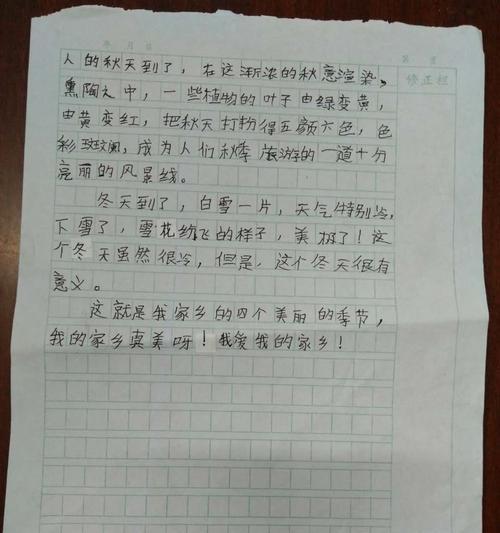 年 月 日
修正栏
人的秋天到了，在这渐浓的秋意渲染，
熏陶之中，一些植物的叶子由绿变黄，
由黄变红，把秋天打扮得五颜六色，色
彩斑斓，成为人们秋季旅游的一道十分
亮丽的风景线。
冬天到了，白雪一片，天气特别冷，
下雪了，雪花纷飞的样子，美极了！这
个冬天虽然很冷，但是，这个冬天很有
意义。
这就是我家乡的四个美丽的季节，
我的家乡真美呀！我爱我的家乡！